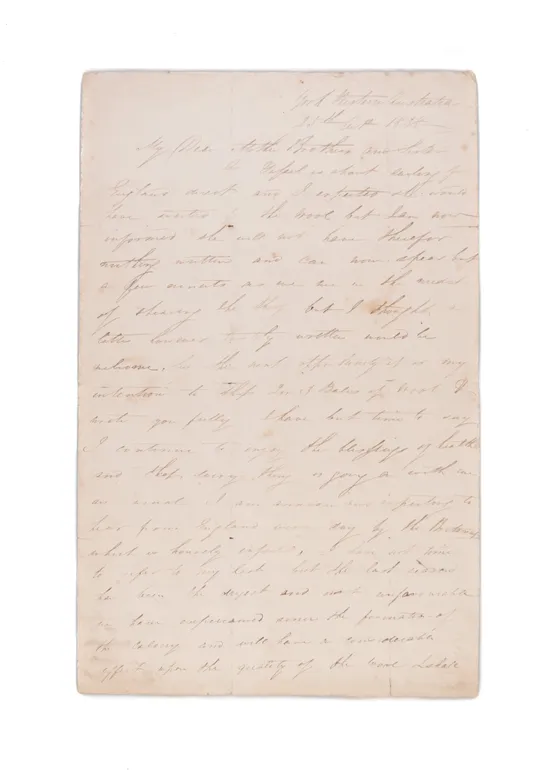 York Western Australia
My Dear Mother Brothers and Sister
A Vessel is about sailing for
England direct and I expected she would
have waited the wool but I am now
informed she will not have therefor
nothing written and can now spear but
a few minutes as we are in the midst
of shearing the but I thought a
letter however written would be
welcome. By the next oppertunity it is my
intention to ship 2 or 3 Bales of Wool I
write you fully I have but time to say
I continue to enjoy the blessings of health
and that every thing is going on with me
as usual I am anxious and expecting to
hear from England every day by the
which is hourly expected, I have not time
to refer to my last but the last season
has been the and most unfavourable
we have experienced since the formation of
the Colony and will have a considerable
effect upon the quantity of the wool